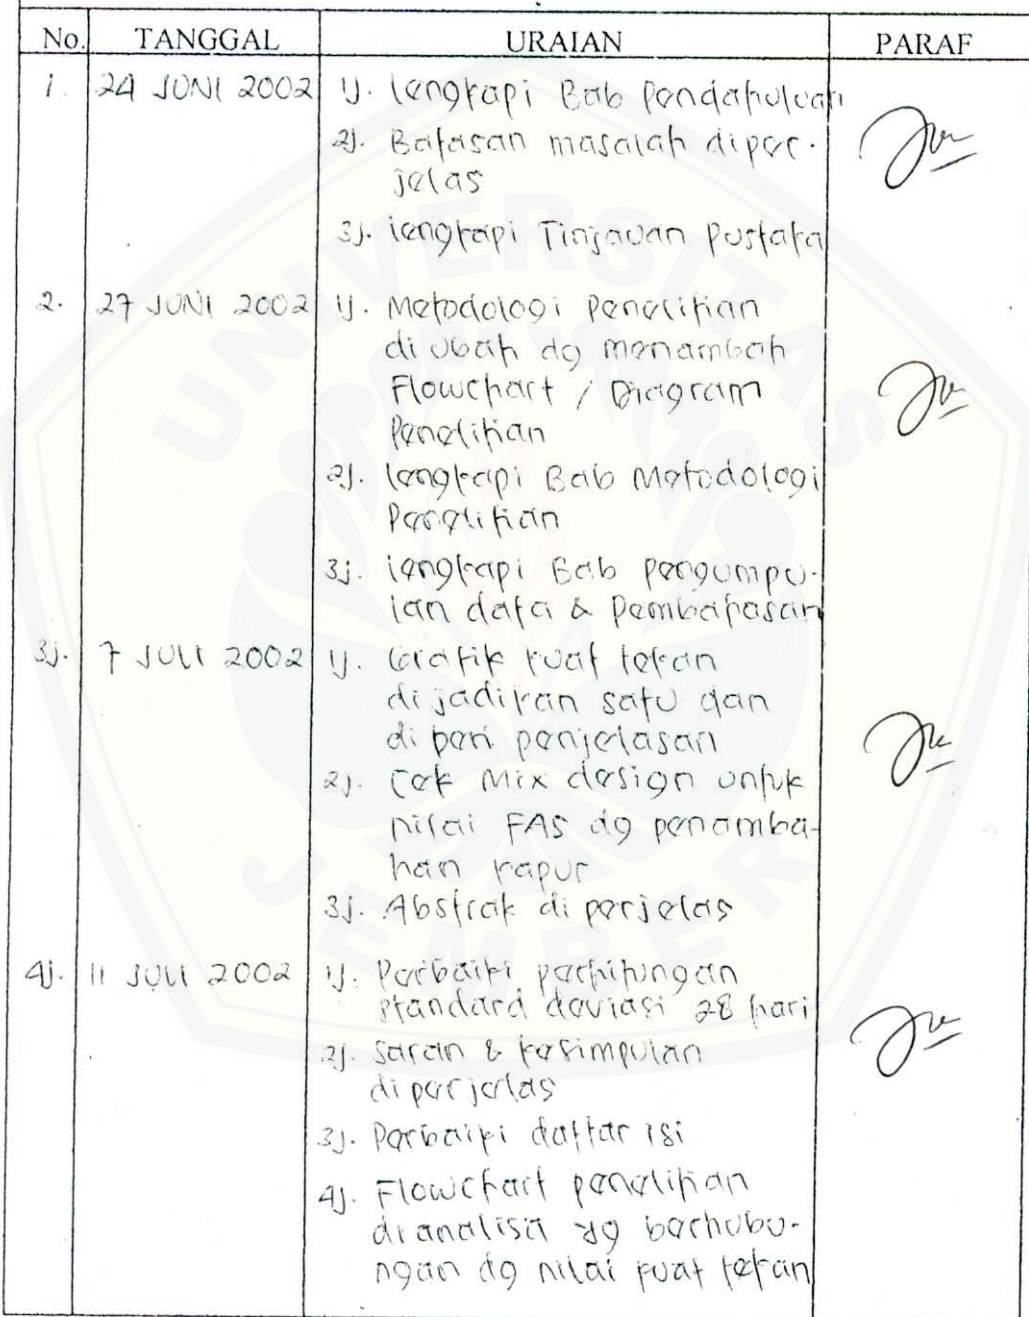 No. TANGGAL URAIAN PARAF
1. 24 JUNI 2002 1). lengkapi Bab Pendahuluan
2). Batasan masalah diper-
jelas
3). lengkapi Tinjauan Pustaka
2. 27 JUNI 2002 1). Metodologi Penelitian
di ubah dg menambah
Flowchart / Diagram
Penelitian
2). lengkapi Bab Metodologi
Penelitian
3). lengkapi Bab pengumpu-
lan data & Pembahasan
3). 7 JULI 2002 1). Grafik kuat tekan
di jadikan satu dan
di beri penjelasan
2). Cek Mix design untuk
nilai FAS dg penamba-
han kapur
3). Abstrak di perjelas
4). 11 JULI 2002 1). Perbaiki perhitungan
standard deviasi 28 hari
2). saran & kesimpulan
di perjelas
3). Perbaiki daftar isi
4). Flowchart penelitian
di analisa yg berhubu-
ngan dg nilai kuat tekan
UNIVERSITAS
JEMBER